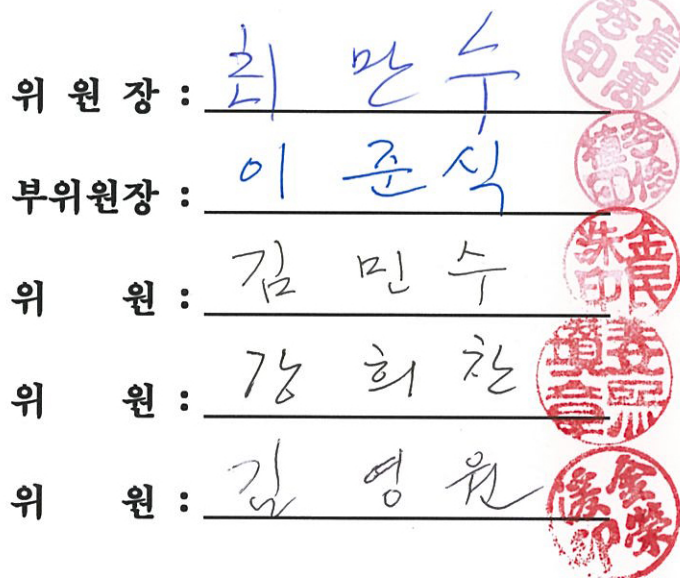 위 원 장 : 최 만 수
부위원장 : 이 준 식
위 원 : 김 민 수
金民洙印
위 원 : 강 희 찬
위 원 : 김 영 원